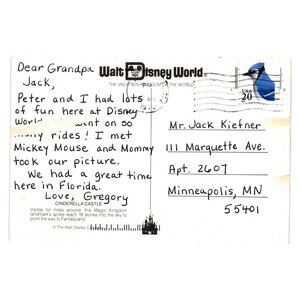 Dear Grandpa
Jack,
Walt Disney World
THE VACATION KINGDOM OF THE WORLD
USA
20
Peter and I had lots
of fun here at Disney
World went on so
many rides! I met
Mickey Mouse and Mommy
took our picture.
We had a great time
here in Florida.
Love, Gregory
Mr. Jack Kiefner
111 Marquette Ave.
Apt. 2607
Minneapolis, MN
55401
CINDERELLA CASTLE
Visible for miles around, this Magic Kingdom
landmark's spires reach 18 stories into the sky to
point the way to Fantasyland.
© The Walt Disney